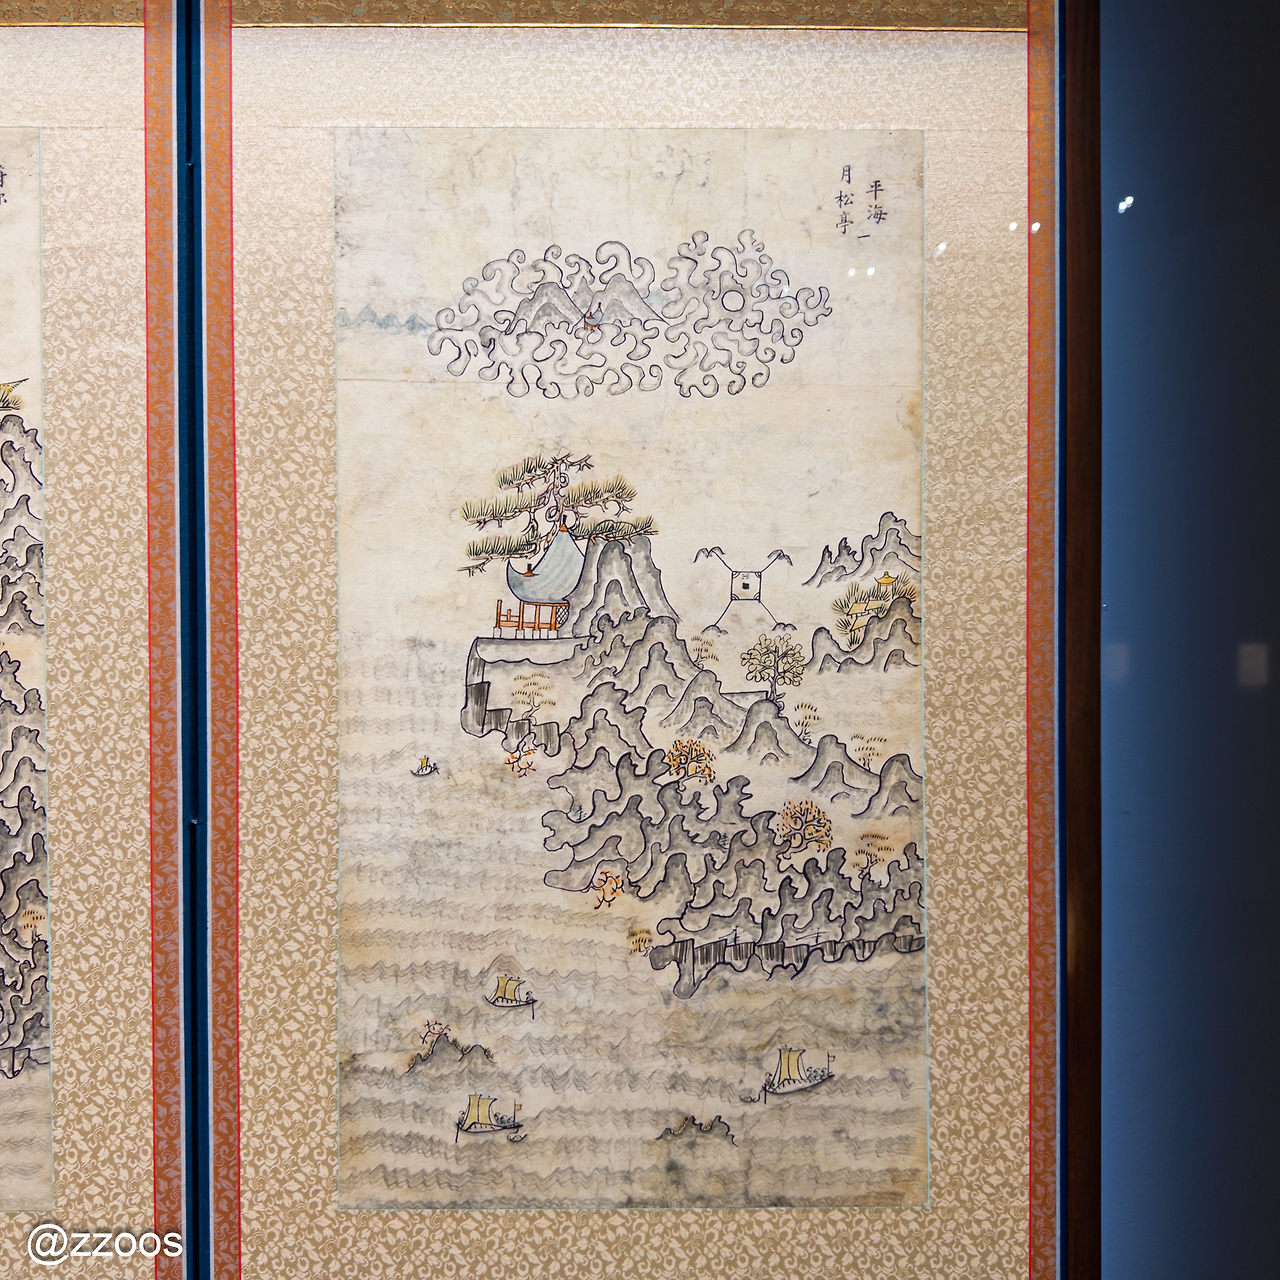 平海一
月松亭
@zzoos